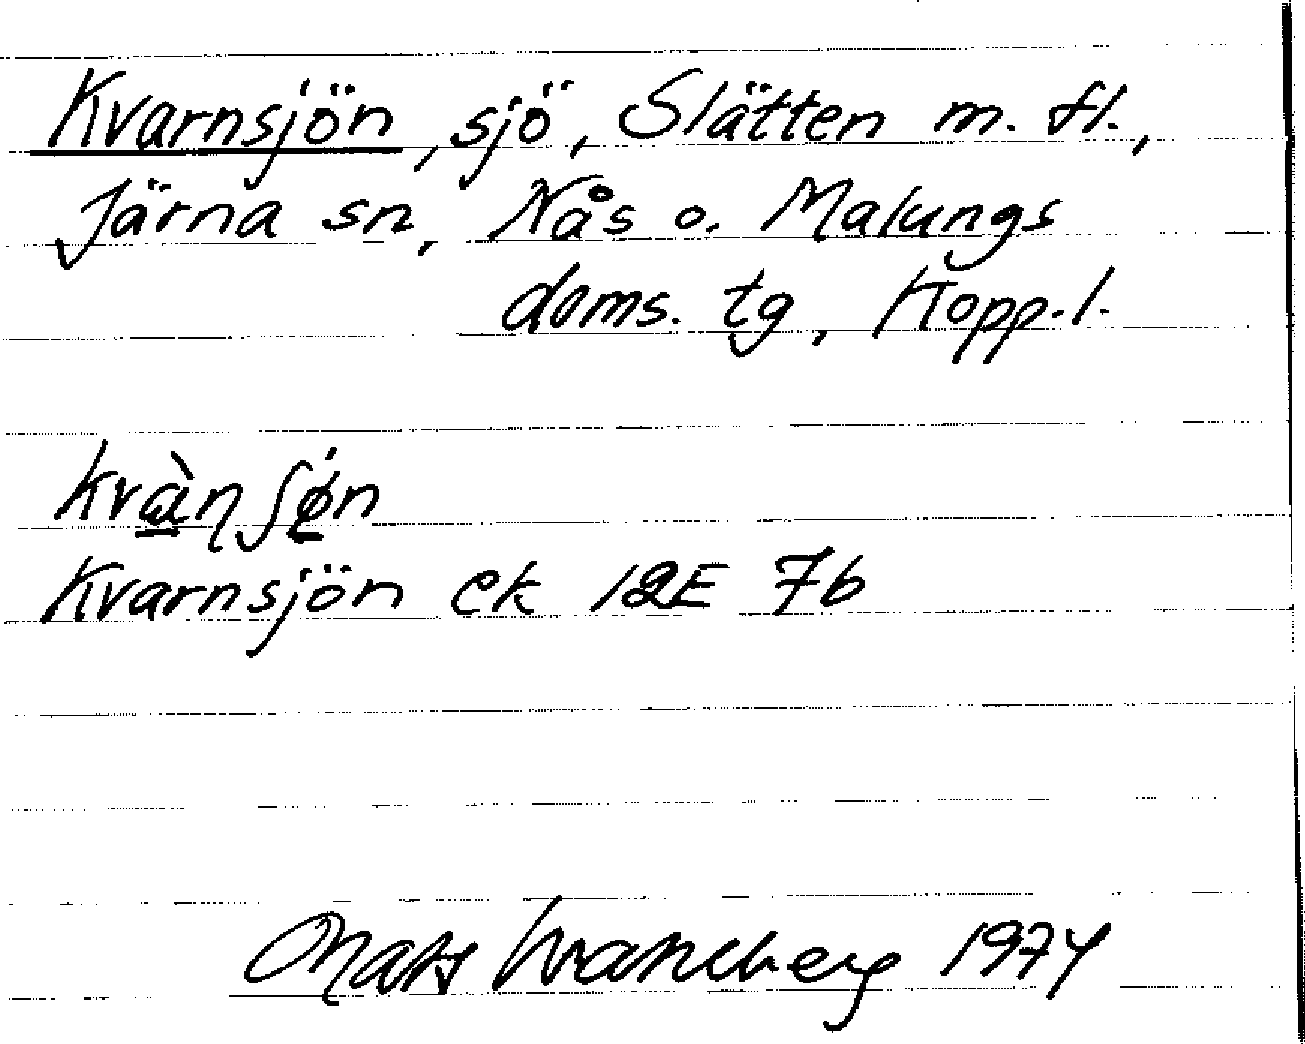 Kvarnsjön, sjö, Slätten m. fl.,
Järna sn, Nås o. Malungs
doms. tg, Kopp. l.
Kvarnsjön ek 12E 7b
Mats Wahlberg 1974